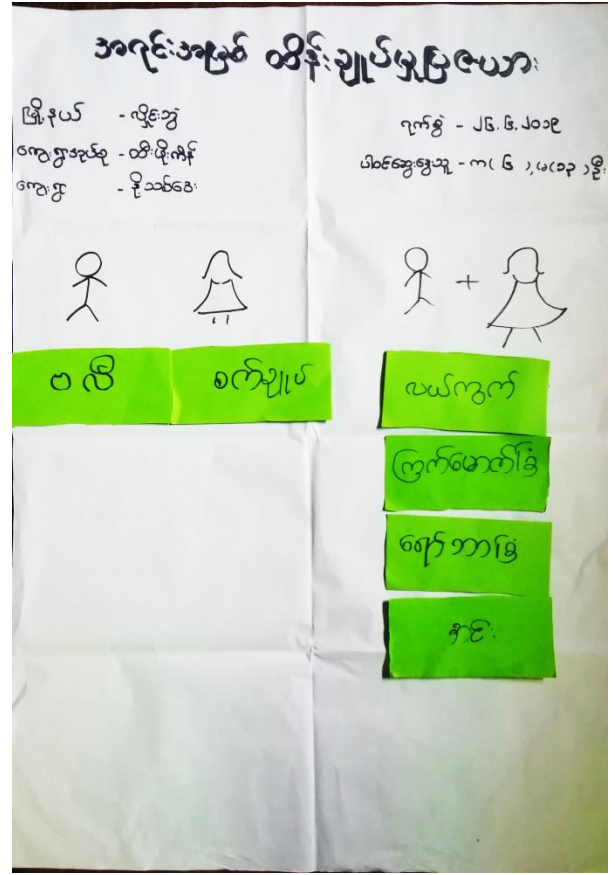 အရင်းအမြစ် ထိန်းချုပ်မှုပြဇယား
မြို့နယ် - လှိုင်းဘွဲ
ကျေးရွာအုပ်စု - ထီးဖိုးကိန်
ကျေးရွာ - နို့သစ်ဒေး
ရက်စွဲ - ၂၆.၆.၂၀၁၉
ပါဝင်ဆွေးနွေးသူ - က( ၆ ),မ(၁၃ )ဦး
+
ဗလီ
စက်ချုပ်
လယ်ကွက်
ကြက်မောက်ခြံ
ရော်ဘာခြံ
နွား